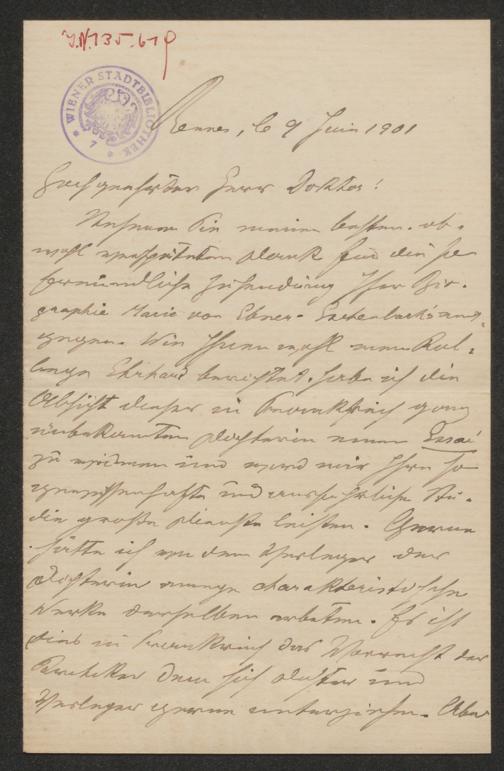 J.N. 135.619
WIENER STADTBIBLIOTHEK
Rennes, le 9 Juin 1901
Hochgeehrter Herr Doktor!
Nehmen Sie meinen besten, ob-
wohl verspäteten Dank für die so
freundliche Zusendung Ihrer Bio-
graphie Marie von Ebner-Eschenbach's ent-
gegen. Wie Ihnen wohl mein Kol-
lege Ehrhard berichtet, habe ich die
Absicht dieser in Frankreich ganz
unbekannten Dichterin einen Essai
zu widmen und wird mir Ihre so
gewissenhafte und ausführliche Stu-
die große Dienste leisten. Gerne
hätte ich von dem Verleger der
Dichterin einige charakteristische
Werke derselben erbeten. Es ist
dies in Frankreich das Vorrecht der
Kritiker dem sich Dichter und
Verleger gerne unterziehen. Aber